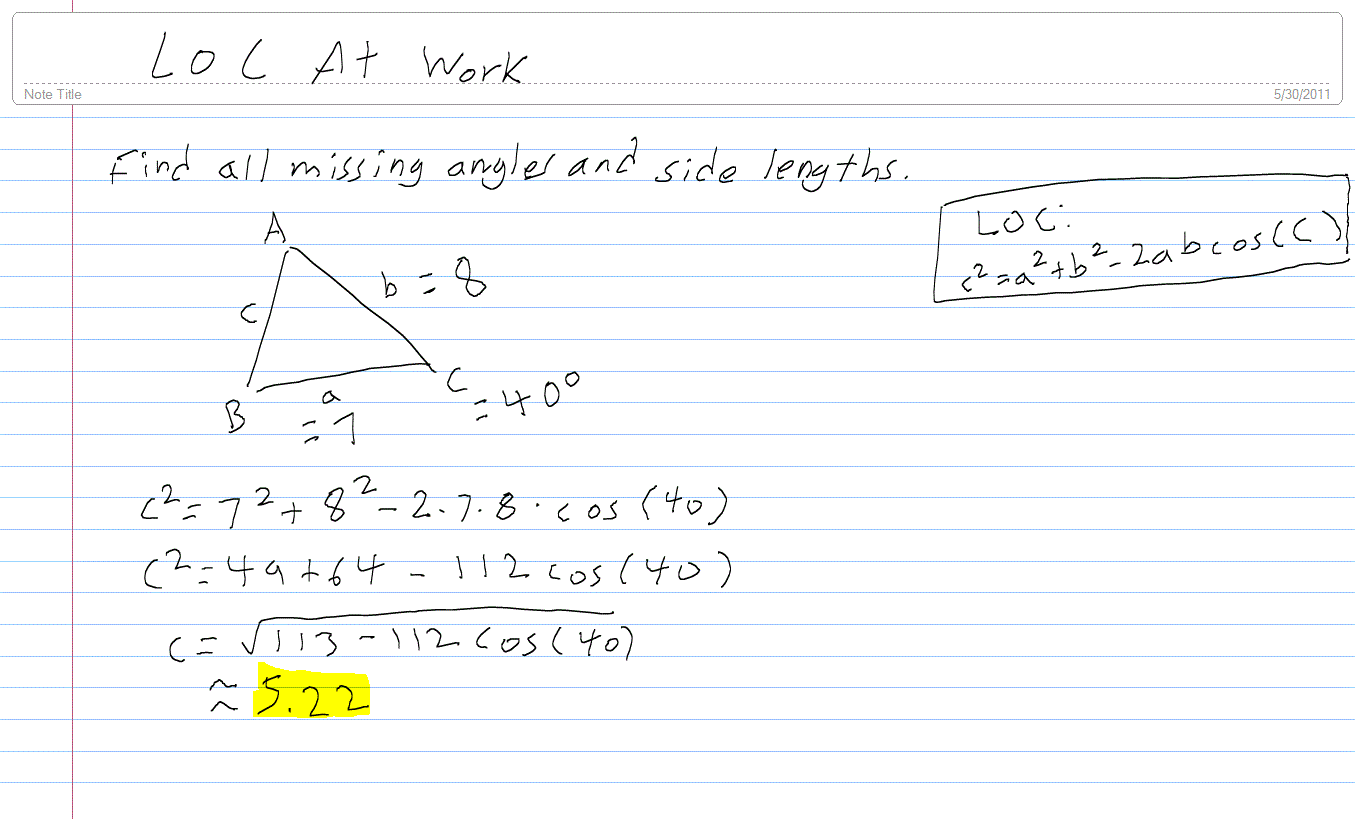 LOC At Work
Note Title
5/30/2011
Find all missing angles and side lengths.
LOC:
c²=a²+b²-2abcos(C)
A
b = 8
c
B
a
=7
C
=40°
c²=7²+8²-2·7·8·cos(40)
c²=49+64-112cos(40)
c=√113-112cos(40)
≈5.22